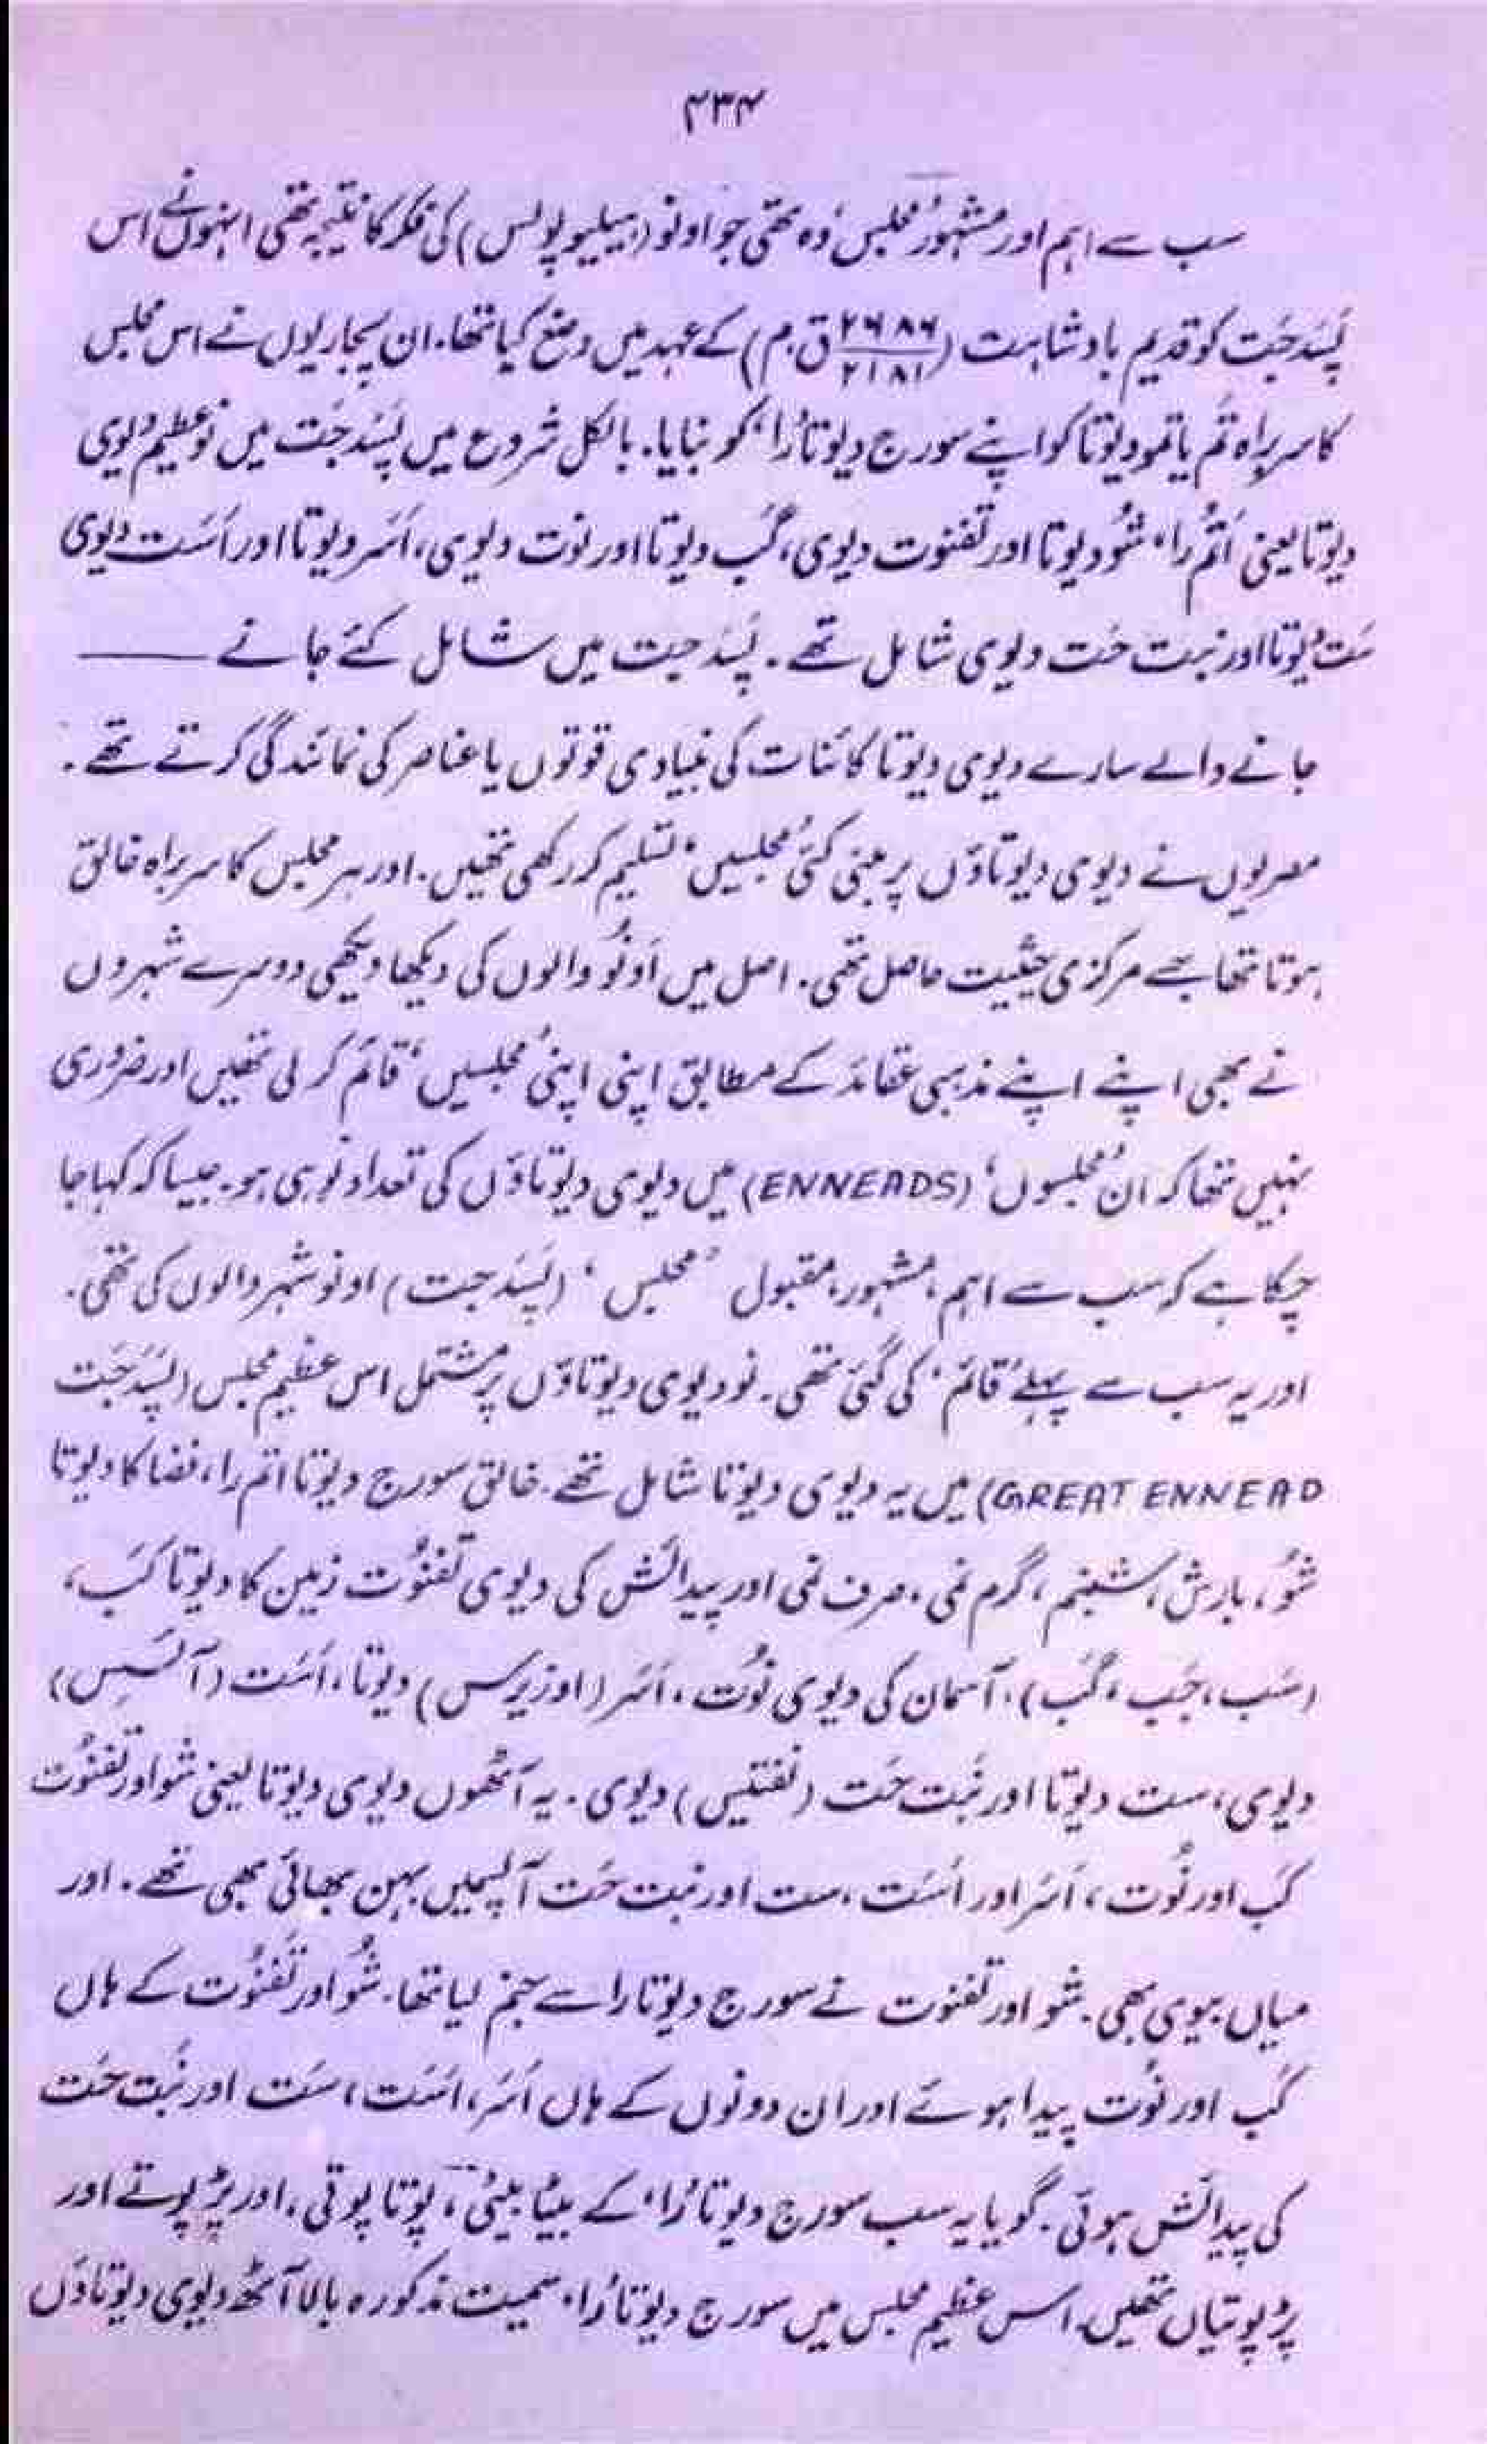 ۴۳۴
سب سے اہم اور مشہور ’مجلس‘ وہ تھی جو اونو (ہیلیوپولس) کی فکر کا نتیجہ تھی انہوں نے اس
پسدجت کو قدیم بادشاہت (۲۶۸۶/۲۱۸۱ ق.م) کے عہد میں وضع کیا تھا. ان پجاریوں نے اس مجلس
کا سربراہ تُم یا تمو دیوتا کو اپنے سورج دیوتا ’را‘ کو بنایا. بالکل شروع میں پسدجت میں نو عظیم دیوی
دیوتا یعنی اَتُم را، شُو دیوتا اور تفنوت دیوی، گب دیوتا اور نوت دیوی، اَسَر دیوتا اور اَسَت دیوی
سَت دیوتا اور نبت حَت دیوی شامل تھے. پسدجت میں شامل کئے جانے ——
جانے والے سارے دیوی دیوتا کائنات کی بنیادی قوتوں یا عناصر کی نمائندگی کرتے تھے.
مصریوں نے دیوی دیوتاؤں پر مبنی کئی ’مجلسیں‘ تسلیم کر رکھی تھیں. اور ہر مجلس کا سربراہ خالق
ہوتا تھا جسے مرکزی حیثیت حاصل تھی. اصل میں اَونُو والوں کی دیکھا دیکھی دوسرے شہروں
نے بھی اپنے اپنے مذہبی عقائد کے مطابق اپنی اپنی ’مجلسیں‘ قائم کر لی تھیں اور ضروری
نہیں تھا کہ ان ’مجلسوں‘ (ENNEADS) میں دیوی دیوتاؤں کی تعداد نو ہی ہو. جیسا کہ کہا جا
چکا ہے کہ سب سے اہم، مشہور، مقبول ’مجلس‘ (پسدجت) اونو شہر والوں کی تھی.
اور یہ سب سے پہلے ’قائم‘ کی گئی تھی. نو دیوی دیوتاؤں پر مشتمل اس عظیم مجلس (پسدجت
GREAT ENNEAD) میں یہ دیوی دیوتا شامل تھے. خالق سورج دیوتا اتم را، فضا کا دیوتا
شُو، بارش، شبنم، گرم نمی، صرف نمی اور پیدائش کی دیوی تفنُوت زمین کا دیوتا کَب،
(سَب، جَب، گَب)، آسمان کی دیوی نُوت، اَسَر (اوزیرکس) دیوتا، اَسَت (آئسس)
دیوی، ست دیوتا اور نَبت حَت (نفتیس) دیوی. یہ آٹھوں دیوی دیوتا یعنی شو اور تفنُوت
کَب اور نُوت، اَسَر اور اَسَت، ست اور نبت حَت آپسمیں بہن بھائی بھی تھے. اور
میاں بیوی بھی. شو اور تفنوت نے سورج دیوتا را سے جنم لیا تھا. شُو اور تَفنُوت کے ہاں
کَب اور نُوت پیدا ہوئے اور ان دونوں کے ہاں اَسَر، اَسَت، سَت اور نَبت حَت
کی پیدائش ہوئی. گویا یہ سب سورج دیوتا ’را‘ کے بیٹا بیٹی، پوتا پوتی، اور پڑپوتے اور
پڑپوتیاں تھیں. اس عظیم مجلس میں سورج دیوتا ’را‘ سمیت مذکورہ بالا آٹھ دیوی دیوتاؤں